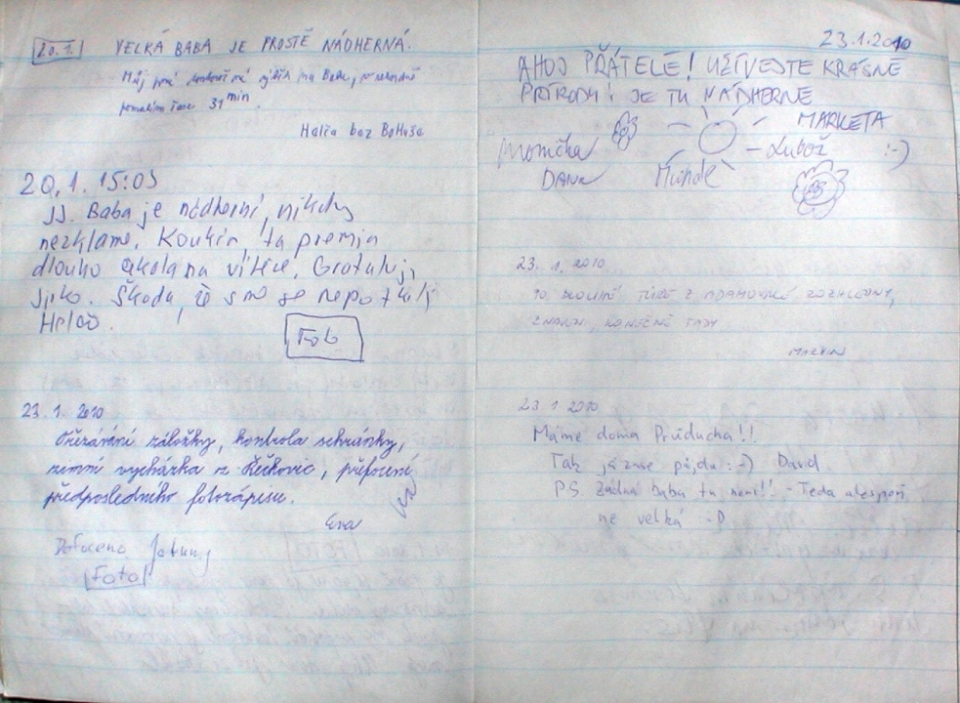 20.1. VELKÁ BABA JE PROSTĚ NÁDHERNÁ.
Můj na Babu,
31 min.
Halča bez Bohouše
20.1. 15:05
JJ. Baba je nádherní, nikdy
nezklame. Koukin, ta
dlouho čekala na vítěze. Gratuluji
Škoda, že sme se nepotkali
Foto
23. 1. 2010
Ořezávání záložky, kontrola schránky,
zimní vycházka z Řečkovic, přefocení
předposledního fotozápisu.
Eva
Dofoceno
Foto
23.1.2010
AHOJ PŘÁTELÉ! UŽÍVEJTE KRÁSNÉ
PŘÍRODY! JE TU NÁDHERNĚ
MARKETA
Monička Luboš :-)
DANA
23. 1. 2010
PO DLOUHÉ Z ADAMOVSKÉ ROZHLEDNY,
KONEČNĚ TADY
MARTIN
23 1 2010
Máme doma Průducha!!
Tak já zase půjdu :-) David
P.S. Žádná baba tu není!! - Teda alespoň
ne velká :-D